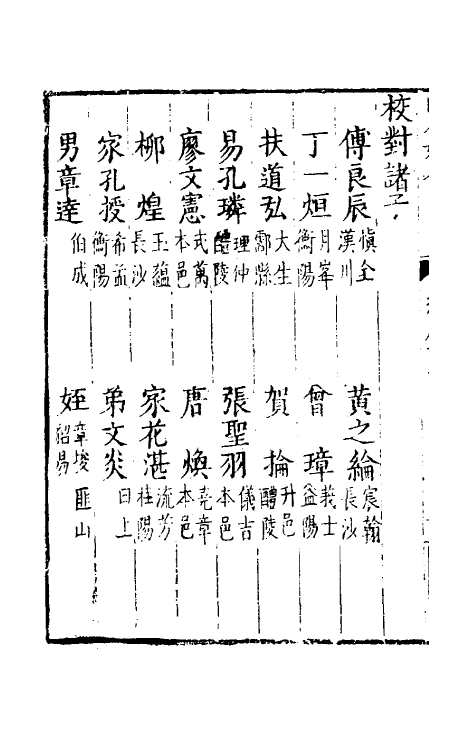 校對諸子
傅良辰 愼全 漢川 黃之綸 宸翰 長沙
丁一烜 月峯 衡陽 曾璋 義士 益陽
扶道弘 大生 酃縣 賀掄 升邑 醴陵
易孔璘 理仲 醴陵 張聖羽 儀吉 本邑
廖文憲 式萬 本邑 唐煥 堯章 本邑
柳煌 玉蘊 長沙 家花湛 流芳 桂陽
家孔授 希孟 衡陽 弟文炎 曰上
男章達 伯成 姪章埈 匪山 韶易